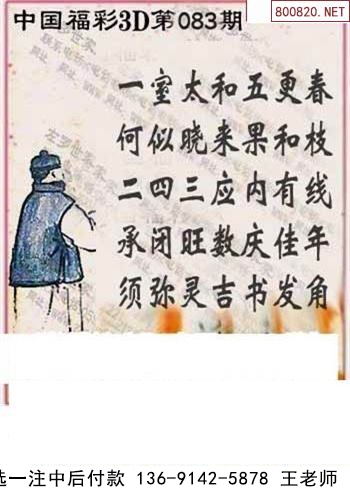 中国福彩3D第083期
800820.NET
一室太和五更春
何似晓来果和枝
二四三应内有线
承闭旺数庆佳年
须弥灵吉书发角
选一注中后付款 136-9142-5878 王老师